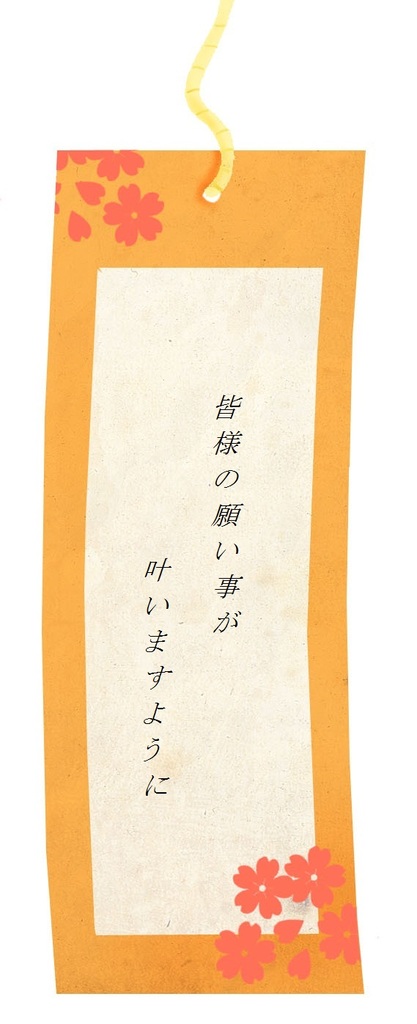 皆様の願い事が
叶いますように